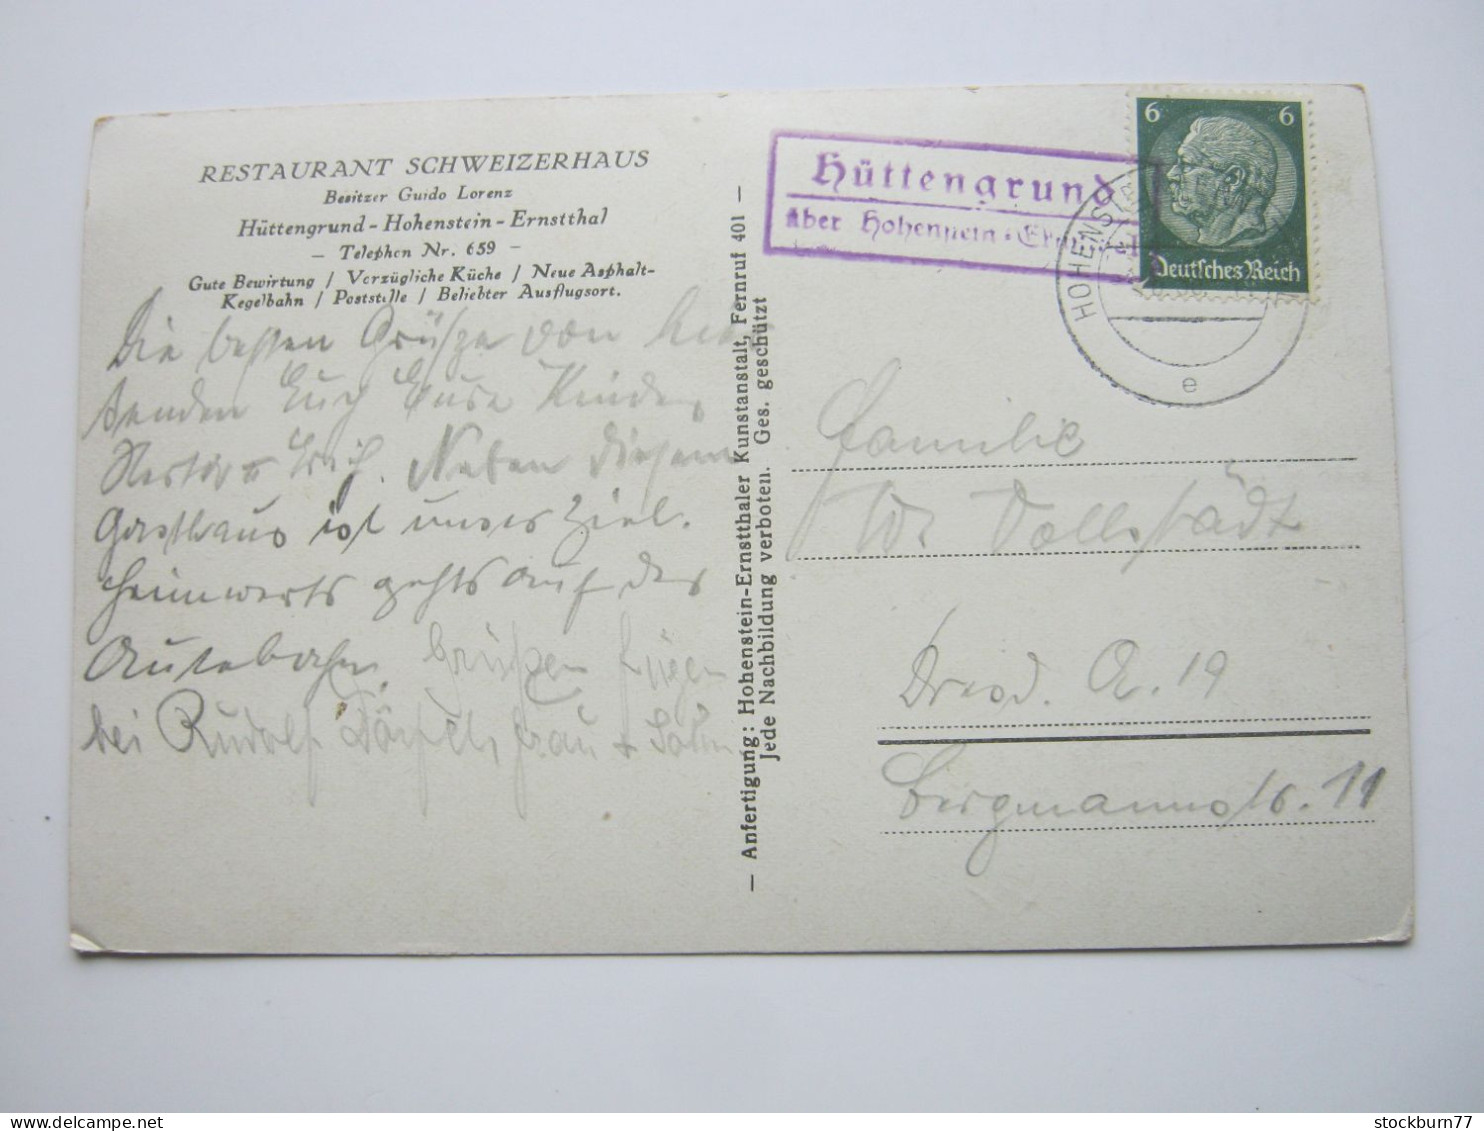 RESTAURANT SCHWEIZERHAUS
Besitzer Guido Lorenz
Hüttengrund - Hohenstein - Ernstthal
– Telephon Nr. 659 –
Gute Bewirtung / Vorzügliche Küche / Neue Asphalt-
Kegelbahn / Poststelle / Beliebter Ausflugsort.
Die besten Grüße von hier
senden Euch Eure Kinder
Erich. Neben diesem
Gasthaus ist unser Ziel.
heimwerts gehts auf der
Autobahn. Grüßen fügen
bei Rudolf Frau + Sohn
— Anfertigung: Hohenstein-Ernstthaler Kunstanstalt, Fernruf 401 —
Jede Nachbildung verboten. Ges. geschützt
Hüttengrund
über Hohenstein-Ernstthal
HOHENSTEIN
e
6 6
Deutsches Reich
Familie
W. Vollstädt
Dresd. A. 19
Bergmannstr. 11
stockburn77